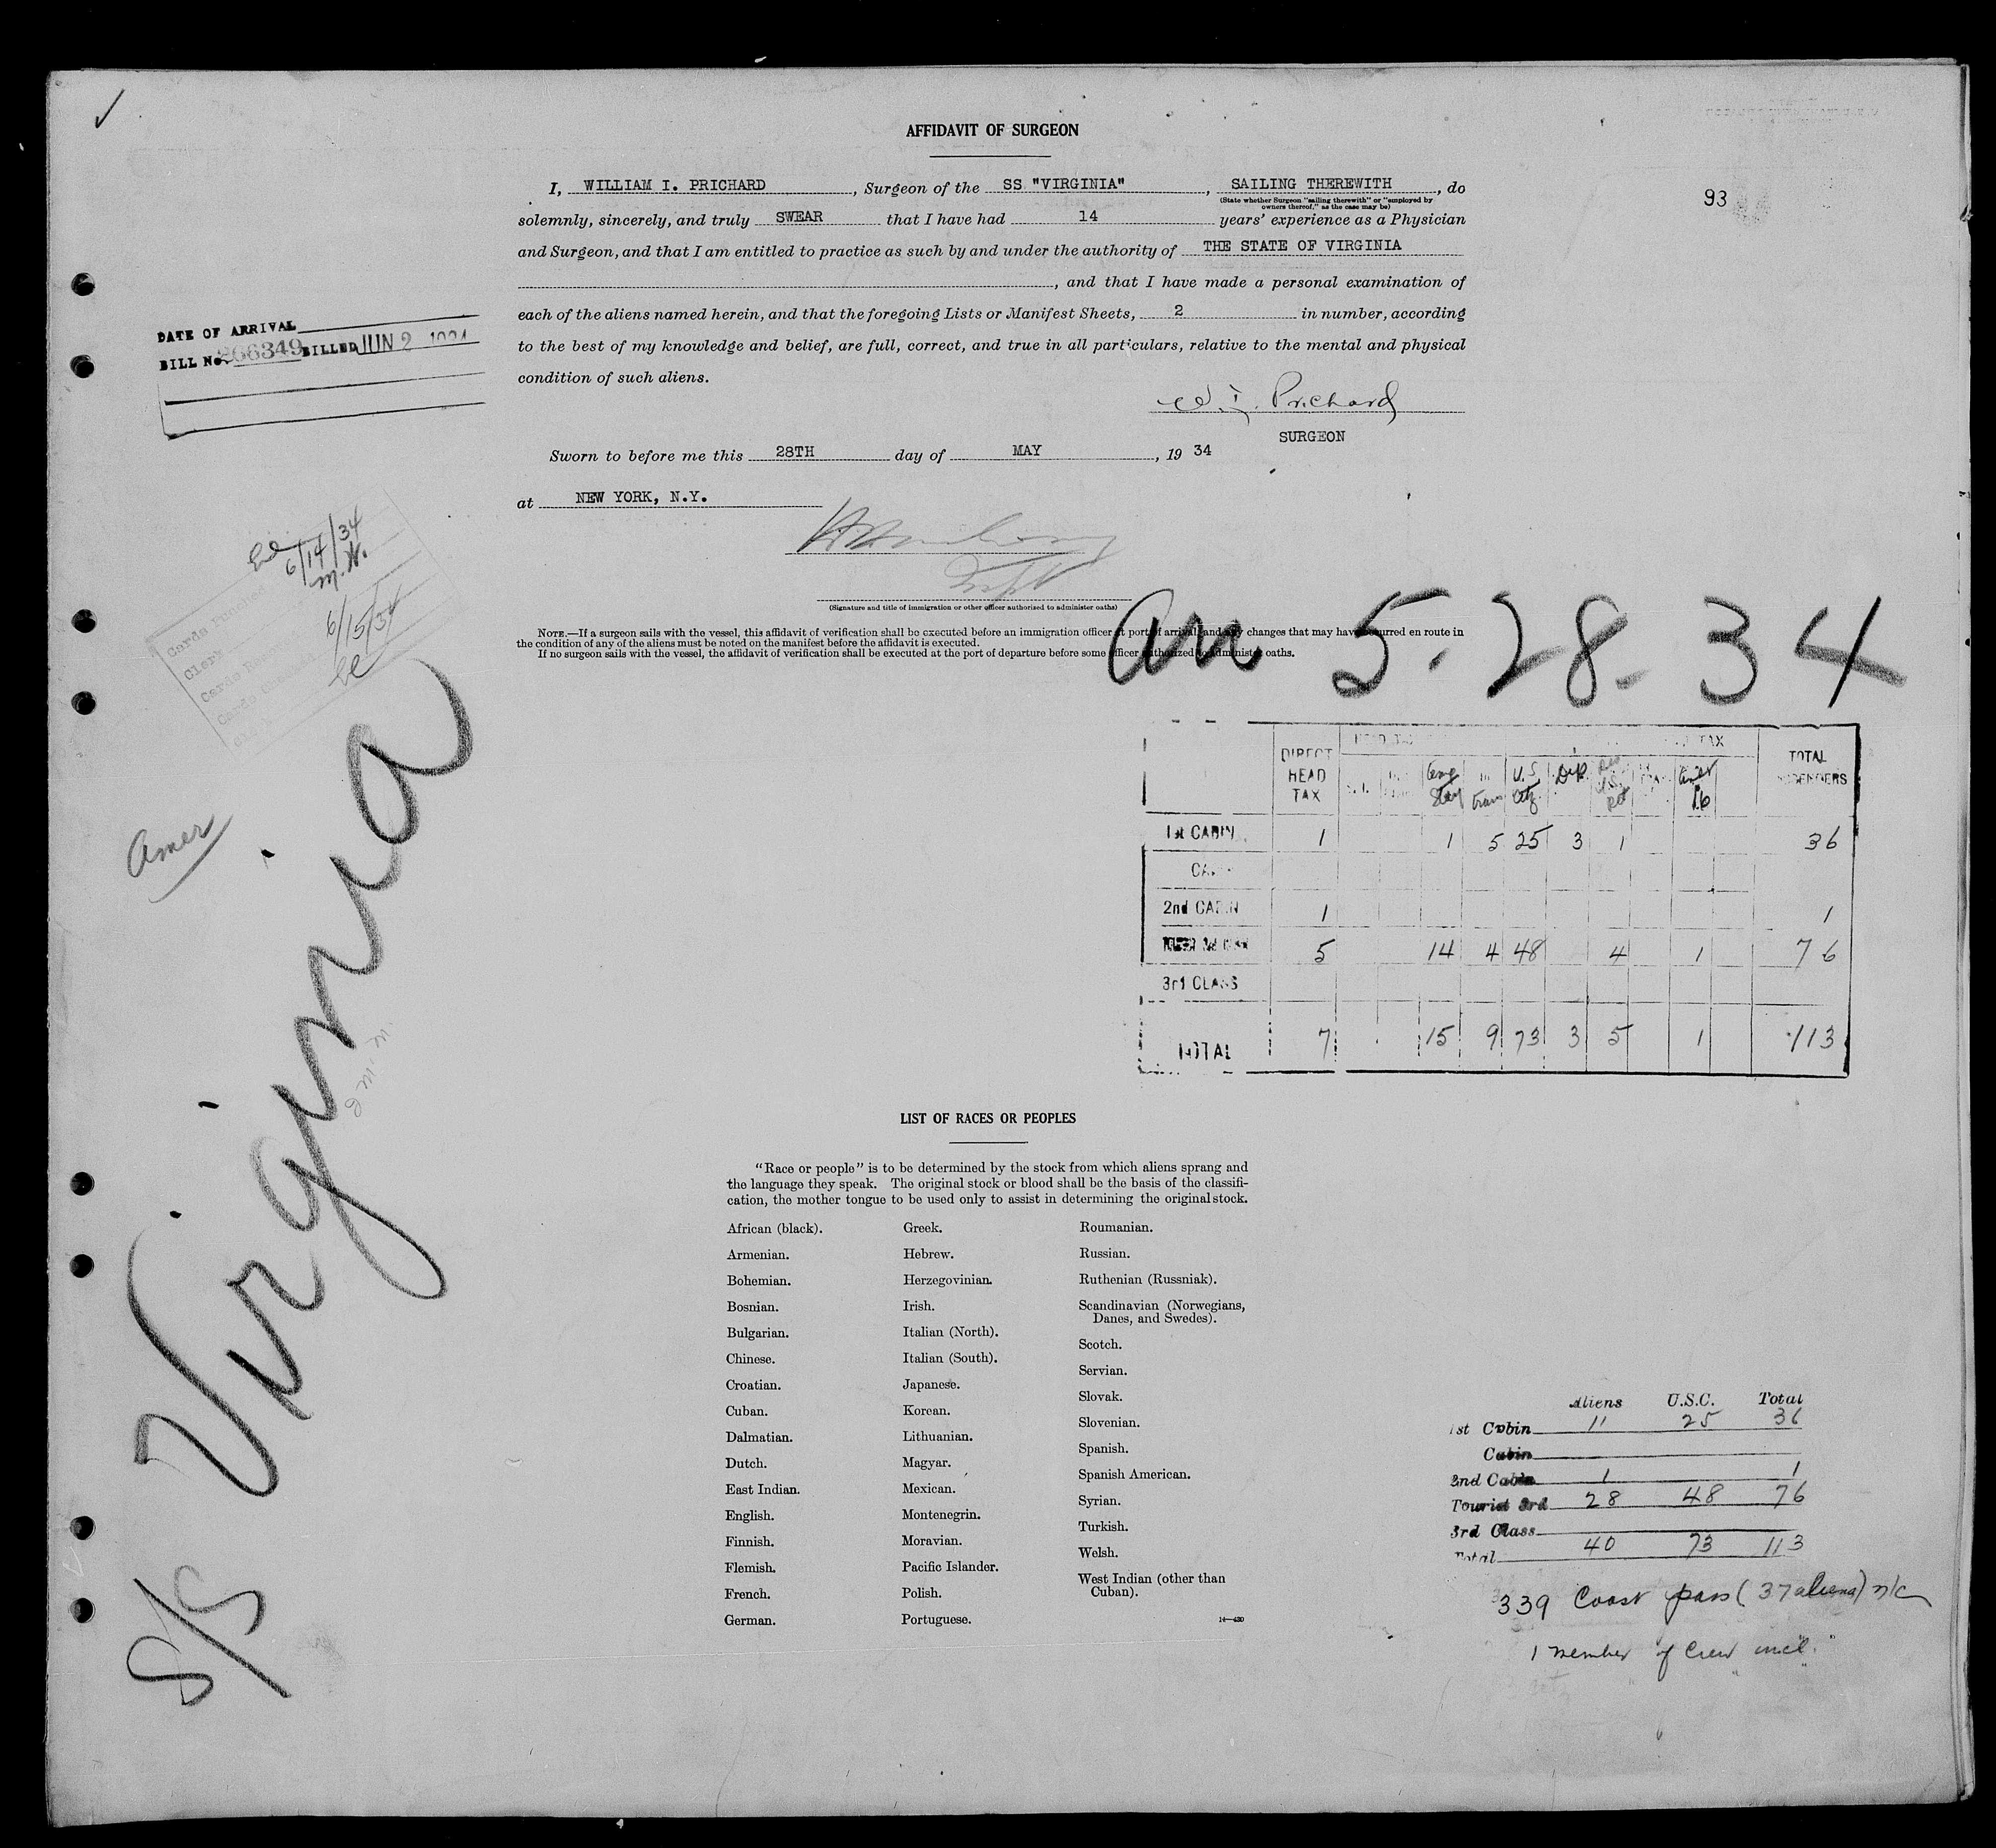 AFFIDAVIT OF SURGEON
I, WILLIAM I. PRICHARD, Surgeon of the SS "VIRGINIA", SAILING THEREWITH, do
(State whether Surgeon "sailing therewith" or "employed by
owners thereof," as the case may be)
93
solemnly, sincerely, and truly SWEAR that I have had 14 years' experience as a Physician
and Surgeon, and that I am entitled to practice as such by and under the authority of THE STATE OF VIRGINIA
, and that I have made a personal examination of
each of the aliens named herein, and that the foregoing Lists or Manifest Sheets, 2 in number, according
to the best of my knowledge and belief, are full, correct, and true in all particulars, relative to the mental and physical
condition of such aliens.
DATE OF ARRIVAL
BILL No. 266349 BILLED JUN 2
W. I. Prichard
SURGEON
Sworn to before me this 28TH day of MAY, 19 34
at NEW YORK, N.Y.
(Signature and title of immigration or other officer authorized to administer oaths)
6/14/34
M.H.
Cards Punched
6/15/34
Clerk
NOTE.—If a surgeon sails with the vessel, this affidavit of verification shall be executed before an immigration officer at port of arrival, and any changes that may have occurred en route in
the condition of any of the aliens must be noted on the manifest before the affidavit is executed.
If no surgeon sails with the vessel, the affidavit of verification shall be executed at the port of departure before some officer authorized to administer oaths.
Arr 5-28-34
DIRECT HEAD TAX U.S. TAX TOTAL
1st CABIN 1 1 5 25 3 1 36
2nd CABIN 1 1
5 14 4 48 4 1 76
3rd CLASS
TOTAL 7 15 9 73 3 5 1 113
Amer
S/S Virginia
LIST OF RACES OR PEOPLES
"Race or people" is to be determined by the stock from which aliens sprang and
the language they speak. The original stock or blood shall be the basis of the classifi-
cation, the mother tongue to be used only to assist in determining the original stock.
African (black).
Armenian.
Bohemian.
Bosnian.
Bulgarian.
Chinese.
Croatian.
Cuban.
Dalmatian.
Dutch.
East Indian.
English.
Finnish.
Flemish.
French.
German.
Greek.
Hebrew.
Herzegovinian.
Irish.
Italian (North).
Italian (South).
Japanese.
Korean.
Lithuanian.
Magyar.
Mexican.
Montenegrin.
Moravian.
Pacific Islander.
Polish.
Portuguese.
Roumanian.
Russian.
Ruthenian (Russniak).
Scandinavian (Norwegians,
Danes, and Swedes).
Scotch.
Servian.
Slovak.
Slovenian.
Spanish.
Spanish American.
Syrian.
Turkish.
Welsh.
West Indian (other than
Cuban).
Aliens U.S.C. Total
1st Cabin 11 25 36
Cabin
2nd Cabin 1 1
Tourist 3rd 28 48 76
3rd Class
Total 40 73 113
339 Coast pass (37 aliens) n/c
1 member of Crew incl.